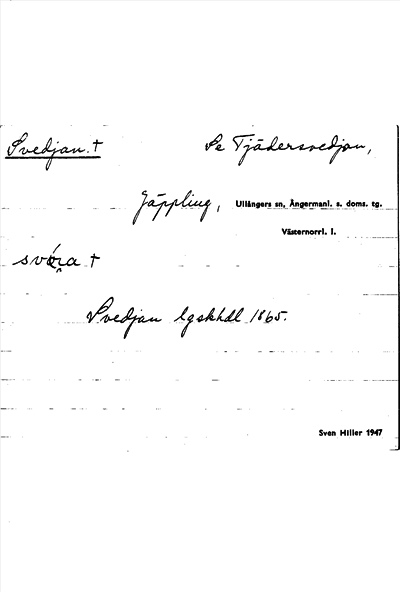 Svedjan. † Se Tjädersvedjan,
Jäppling, Ullångers sn, Ångermanl. s. doms. tg.
Västernorrl. l.
svéra †
Svedjan lgskhdl 1865.
Sven Hiller 1947